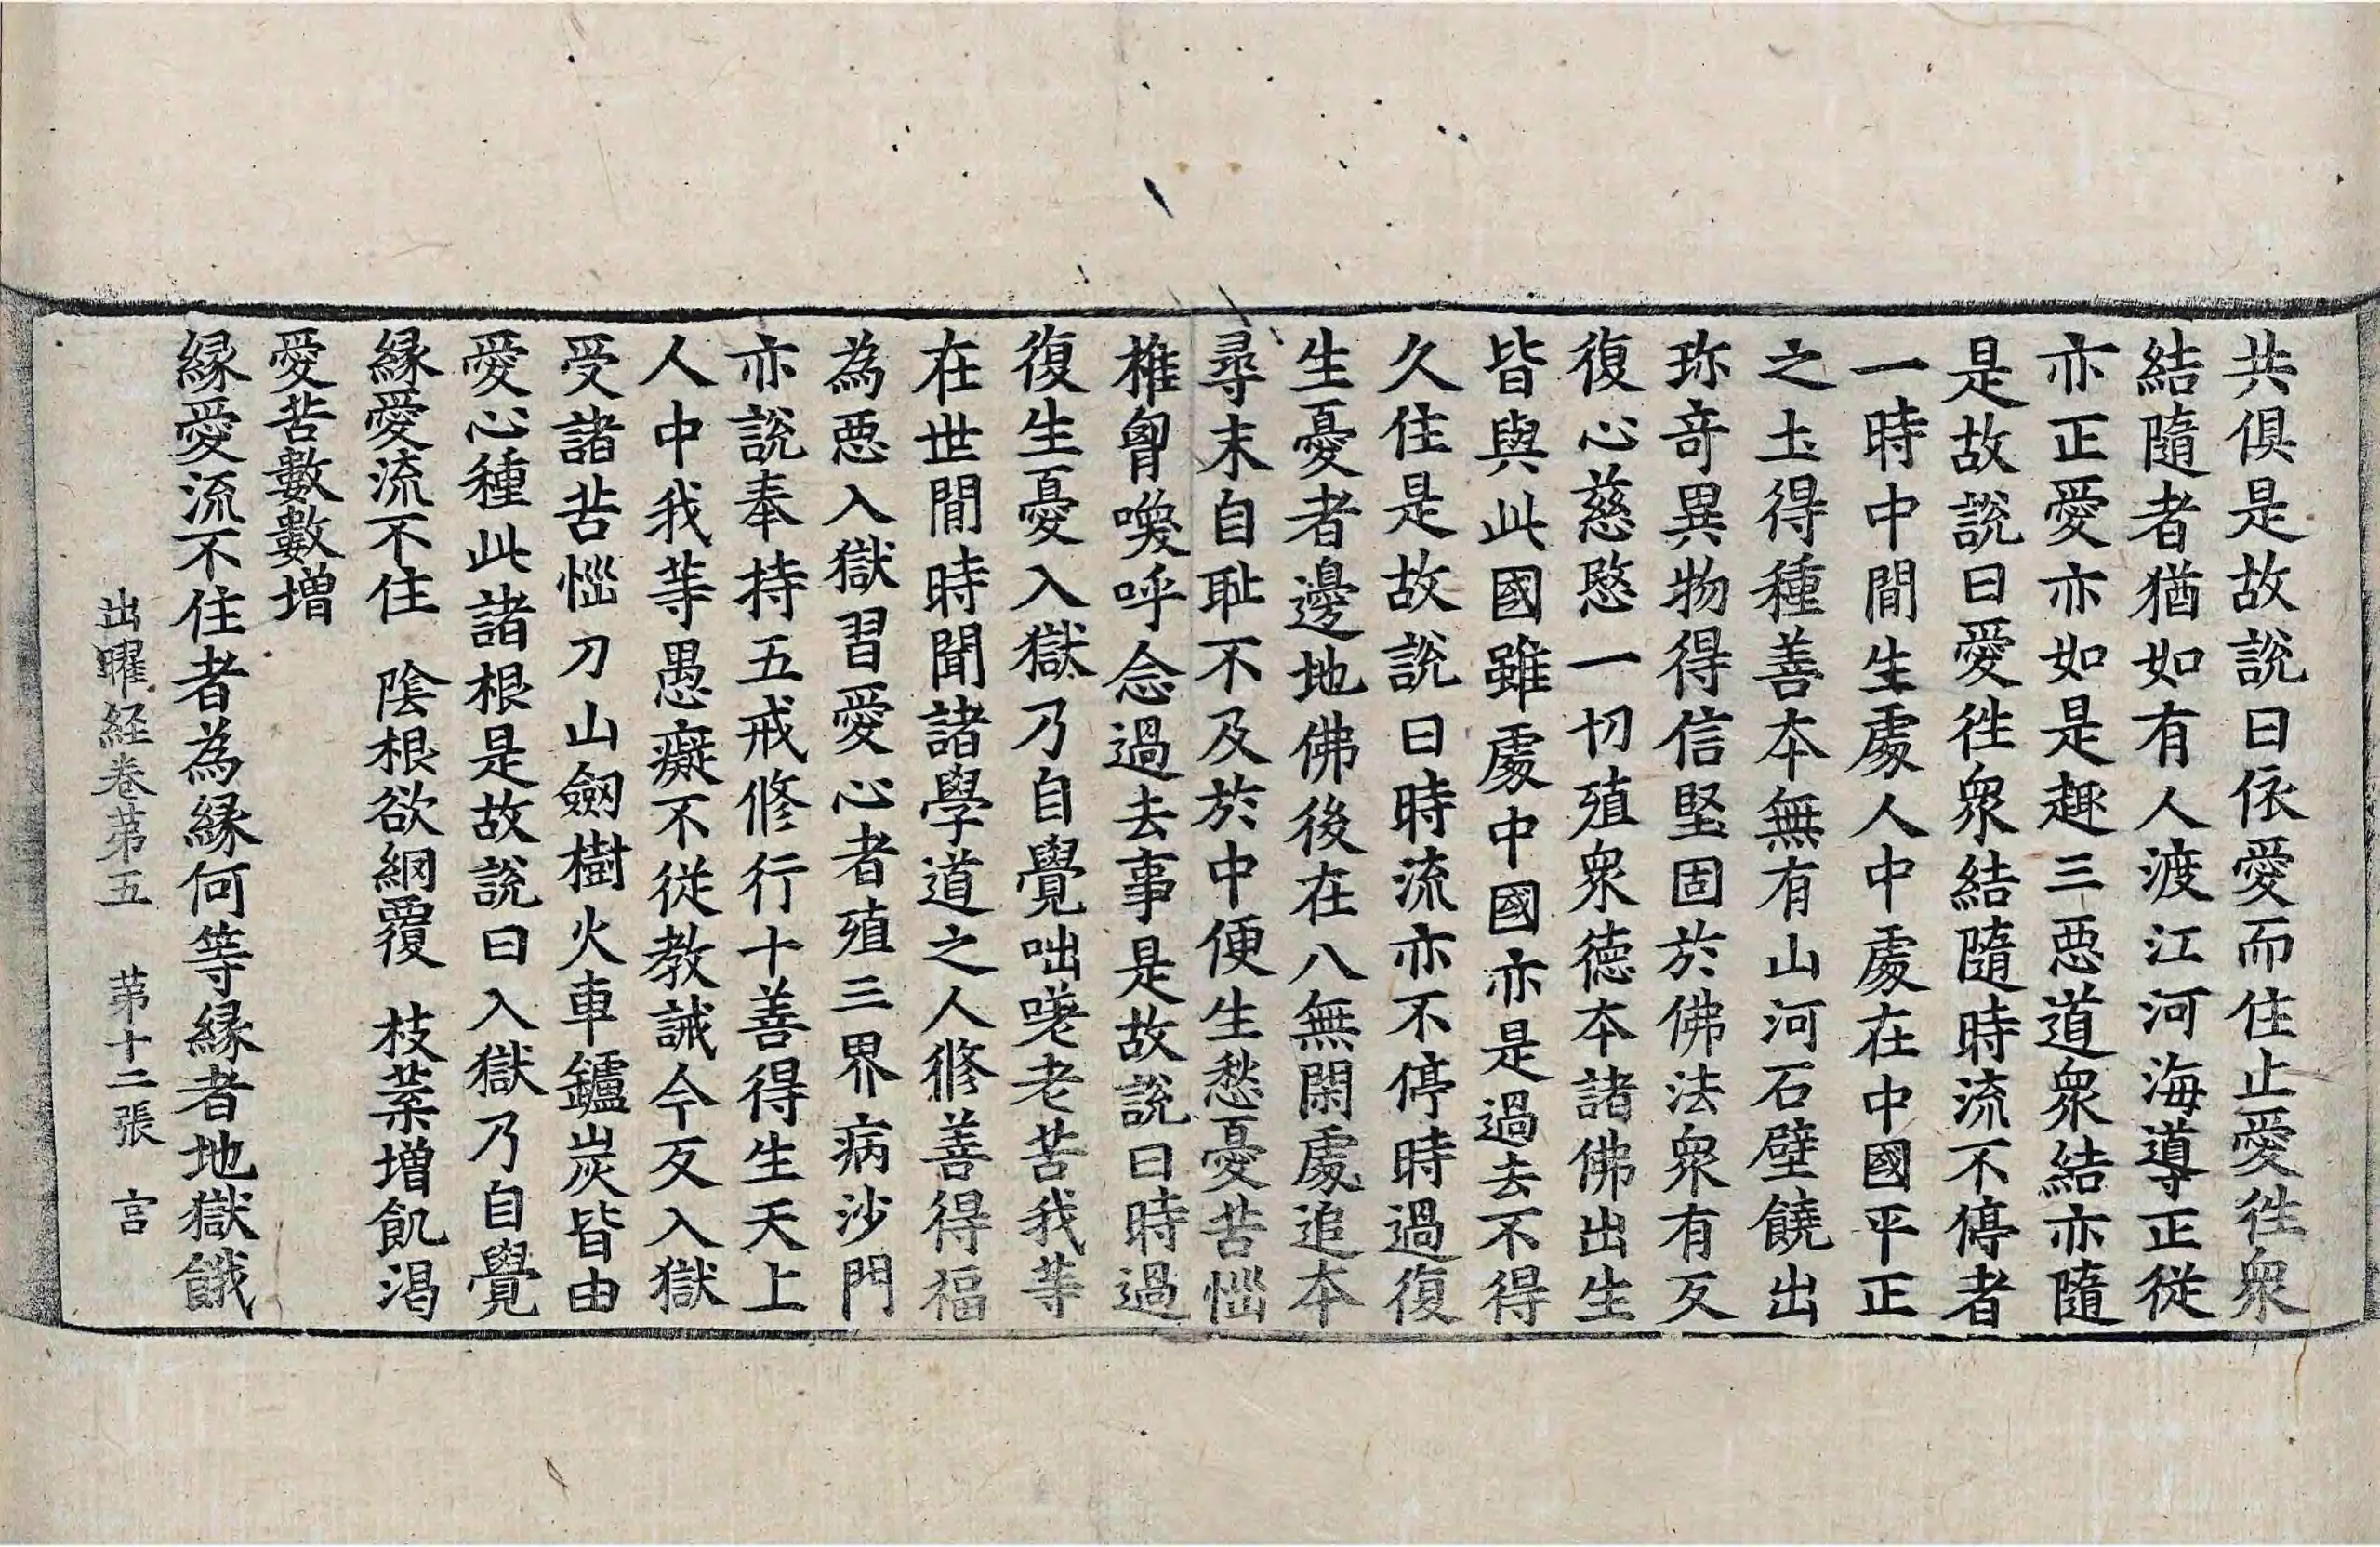 共俱是故說曰依愛而住止愛徃衆
結隨者猶如有人渡江河海導正從
亦正愛亦如是趣三惡道衆結亦隨
是故說曰愛徃衆結隨時流不停者
一時中間生處人中處在中國平正
之土得種善本無有山河石壁饒出
珎竒異物得信堅固於佛法衆有反
復心慈愍一切殖衆德本諸佛出生
皆與此國雖處中國亦是過去不得
久住是故說曰時流亦不停時過復
生憂者邊地佛後在八無閑處追本
尋末自耻不及於中便生愁憂苦惱
椎胷喚呼念過去事是故說曰時過
復生憂入獄乃自覺咄嗟老苦我等
在世間時聞諸學道之人修善得福
為惡入獄習愛心者殖三界病沙門
亦說奉持五戒修行十善得生天上
人中我等愚癡不從教誡今反入獄
受諸苦惱刀山劒樹火車鑪炭皆由
愛心種此諸根是故說曰入獄乃自覺
緣愛流不住　陰根欲網覆　枝葉增飢渴
愛苦數數增
緣愛流不住者為緣何等緣者地獄餓
出曜経卷苐五　苐十二張　宫